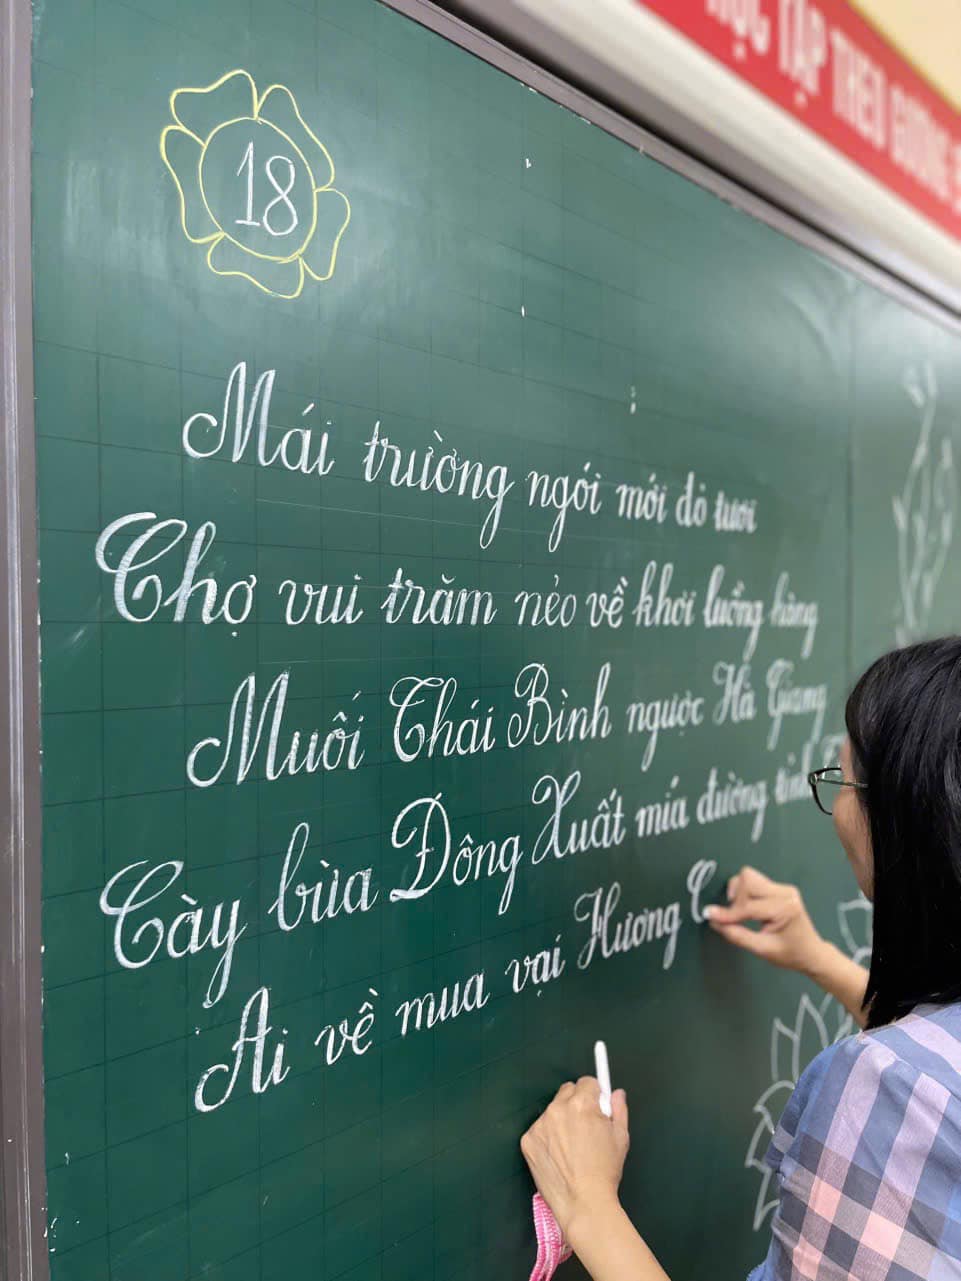 HỌC TẬP THEO GƯƠNG
18
Mái trường ngói mới đỏ tươi
Chợ vui trăm nẻo về khơi luồng hàng
Muối Thái Bình ngược Hà Giang
Cày bừa Đông Xuất mía đường tỉnh
Ai về mua vại Hương